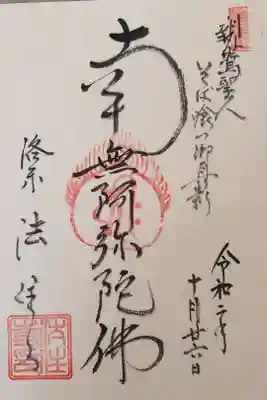 親鸞聖人
そば喰
令和二年
十月廿六日
南無阿弥陀佛
洛東 法住寺